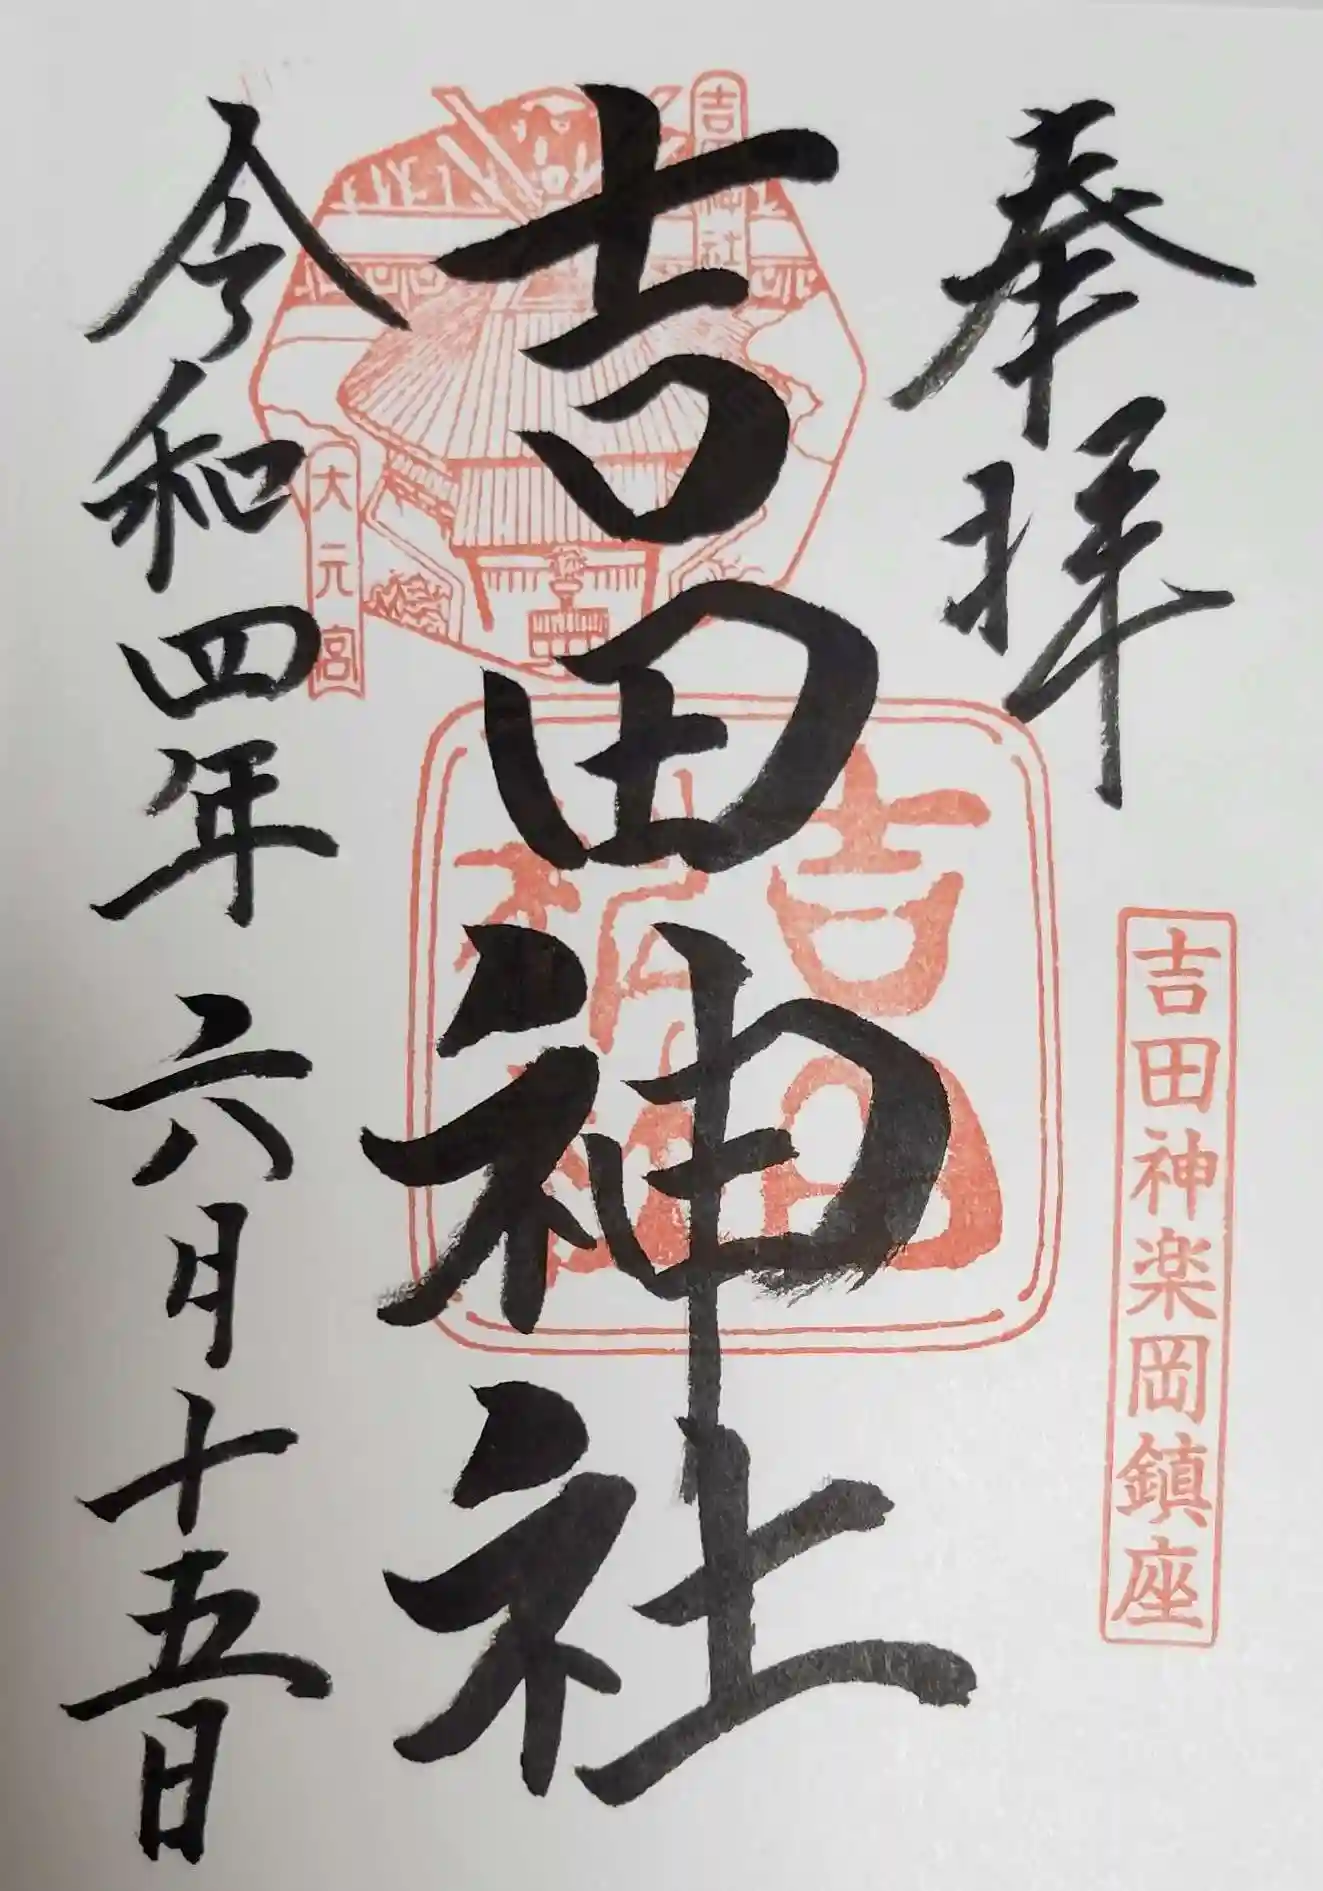 奉拝
吉田神楽岡鎮座
吉田神社
吉田神社
大元宮
令和四年六月十五日